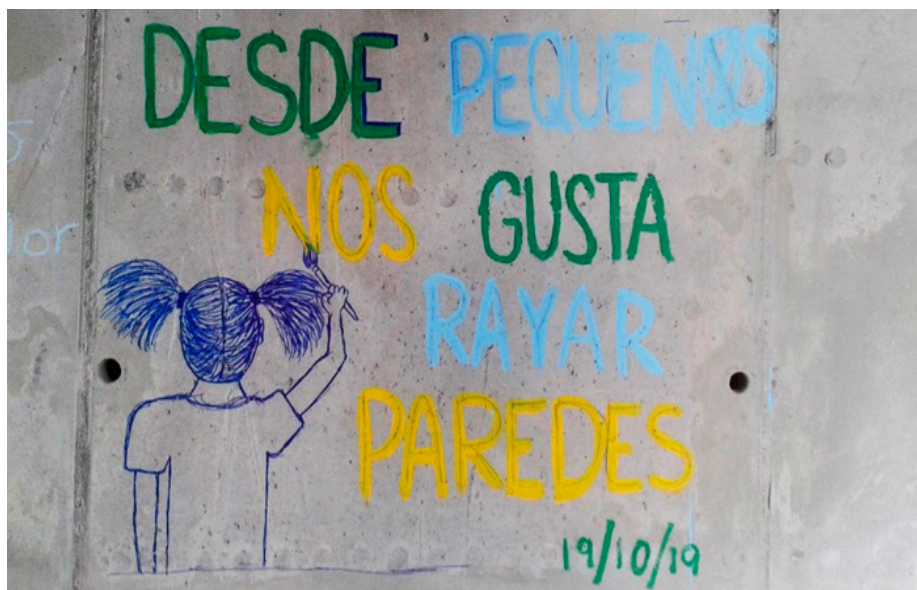 DESDE PEQUEÑOS
NOS GUSTA
RAYAR
PAREDES
19/10/19